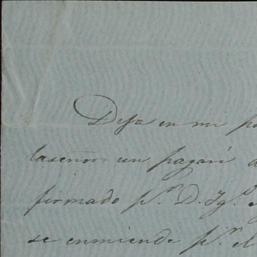 Deja en mi po
la señora un pagaré a
firmado p.r D. Yg.o
se enmiende p.r el